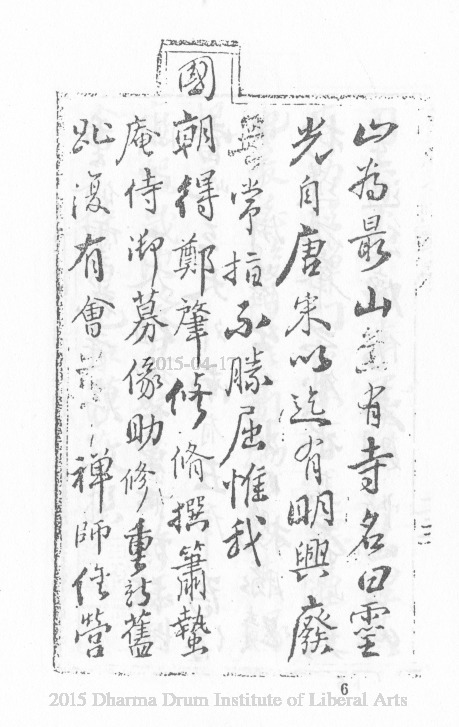 山為最山有寺名曰靈
光自唐宋以迄有明興廢
常指不勝屈惟我
國朝得鄭肇修脩撰簫蟄
庵侍御募緣助修重新舊
趾復有會禪師經營
2015-04-17
6
2015 Dharma Drum Institute of Liberal Arts